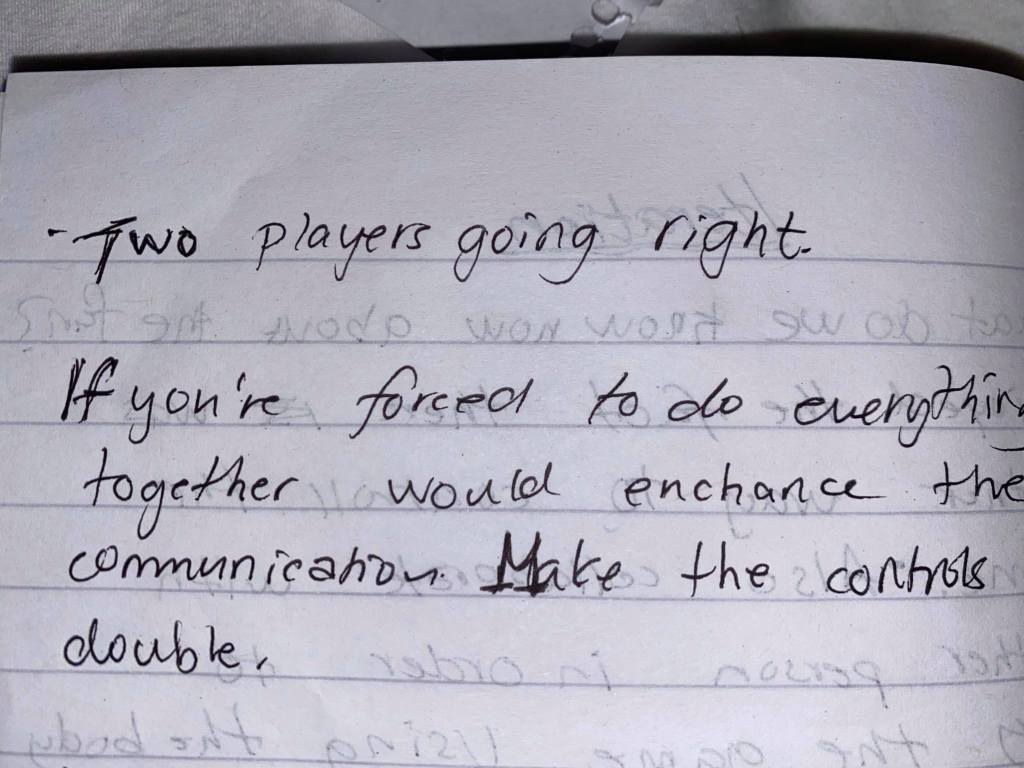 - Two players going right.
If you're forced to do everything
together would enchance the
communication. Make the controls
double.